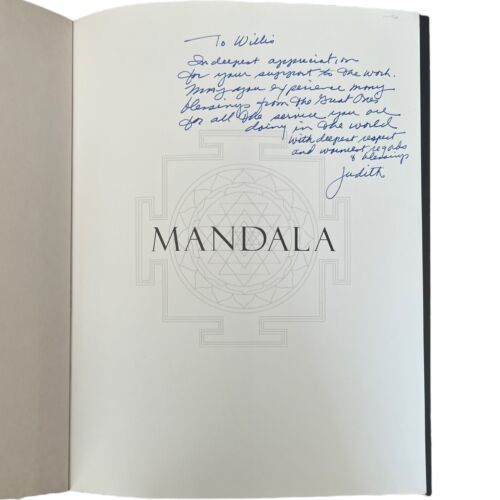 To Willis
In deepest appreciation
for your support to the work.
May you experience many
blessings from the Great Ones
for all the service you are
doing in the world
With deepest respect
and warmest regards
& blessings
Judith
MANDALA